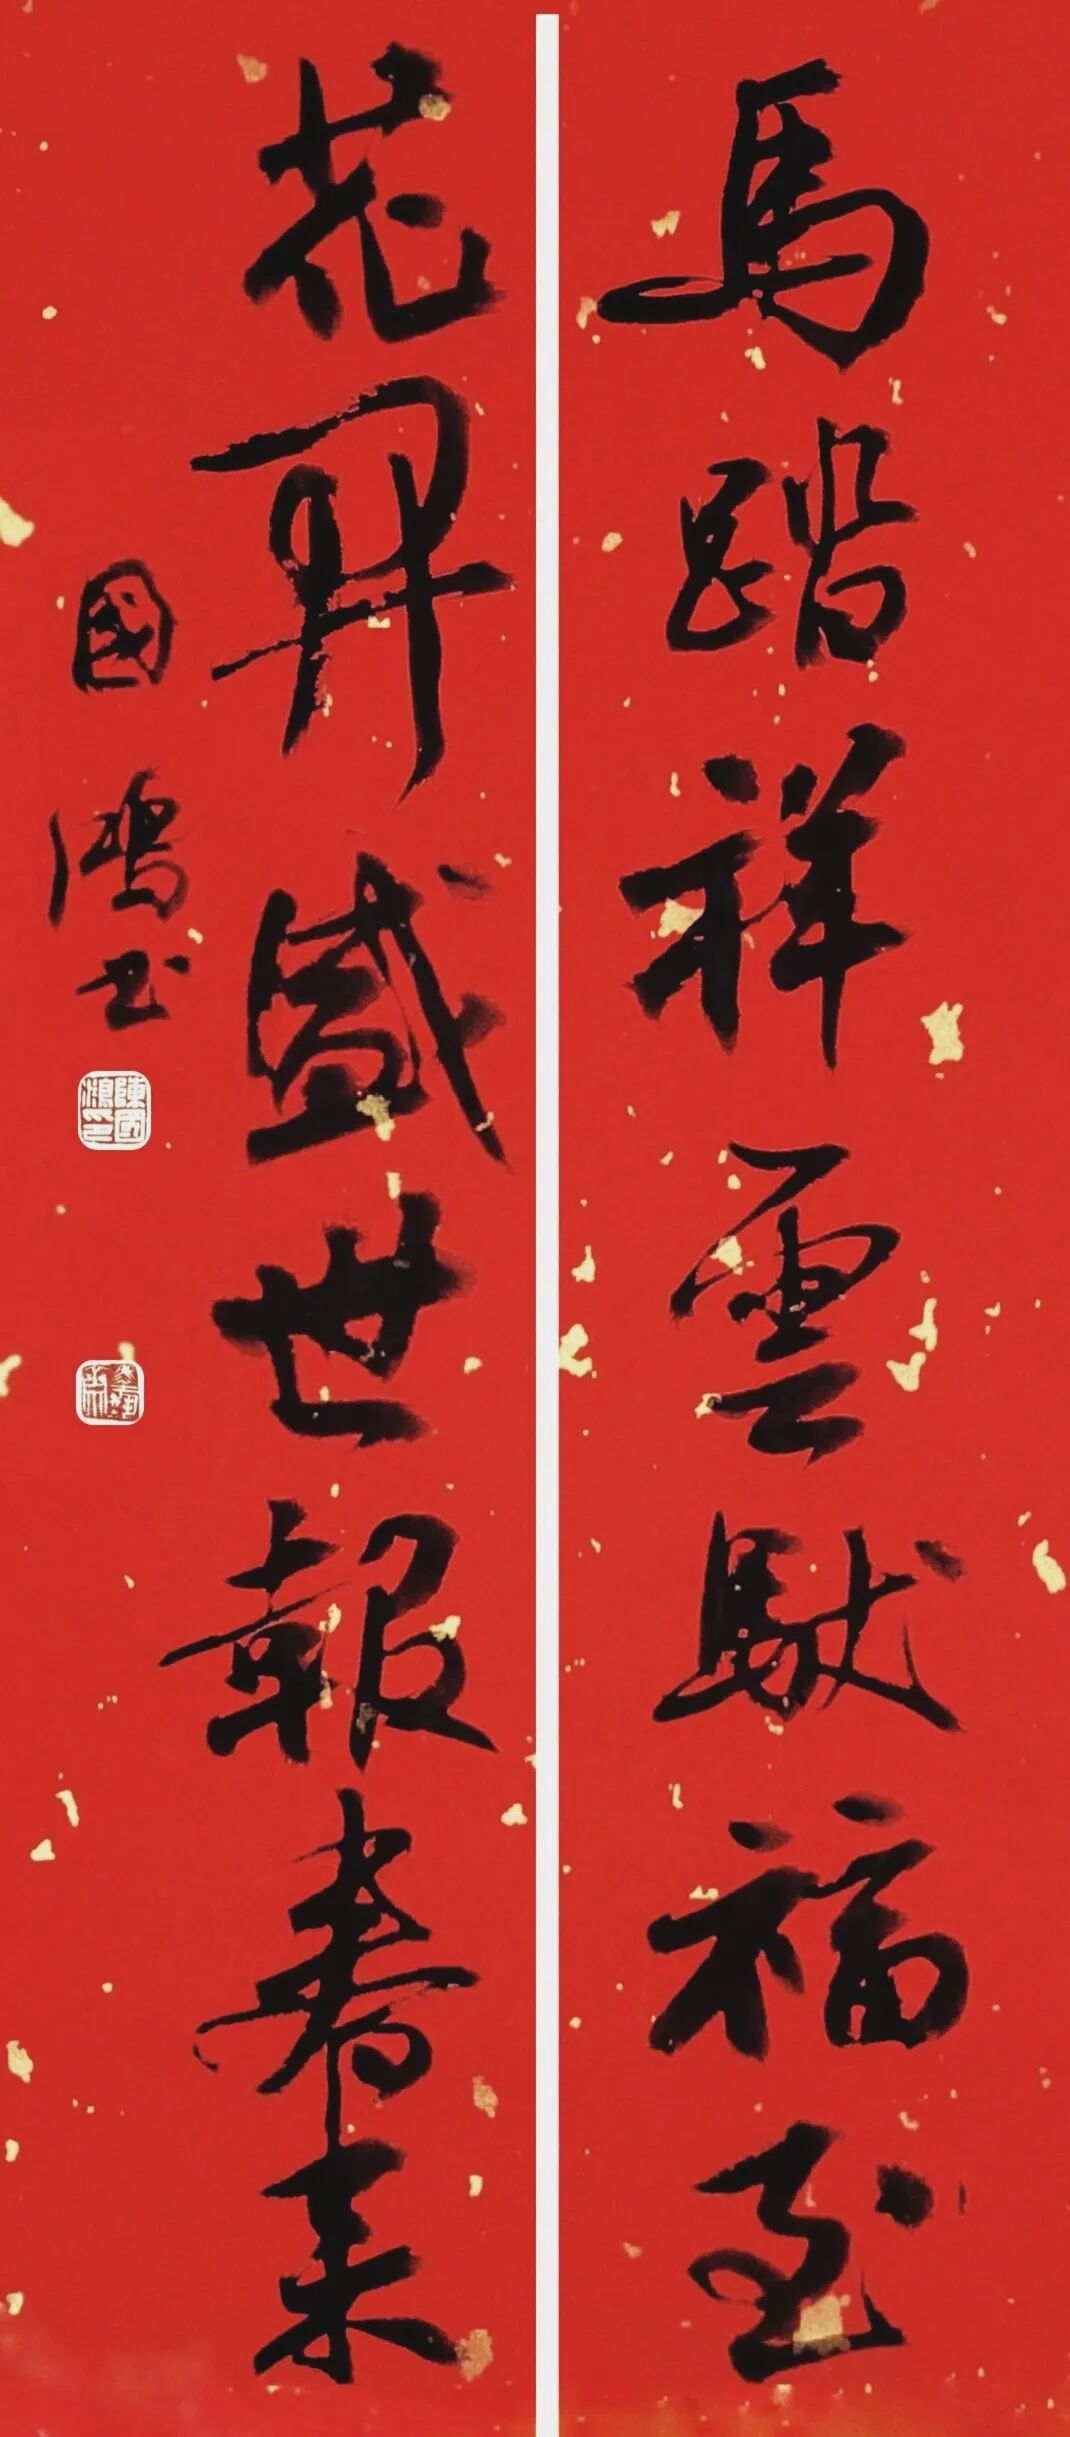 馬踏祥雲馱福至
花開盛世報春來
國鴻书
陳國鴻印